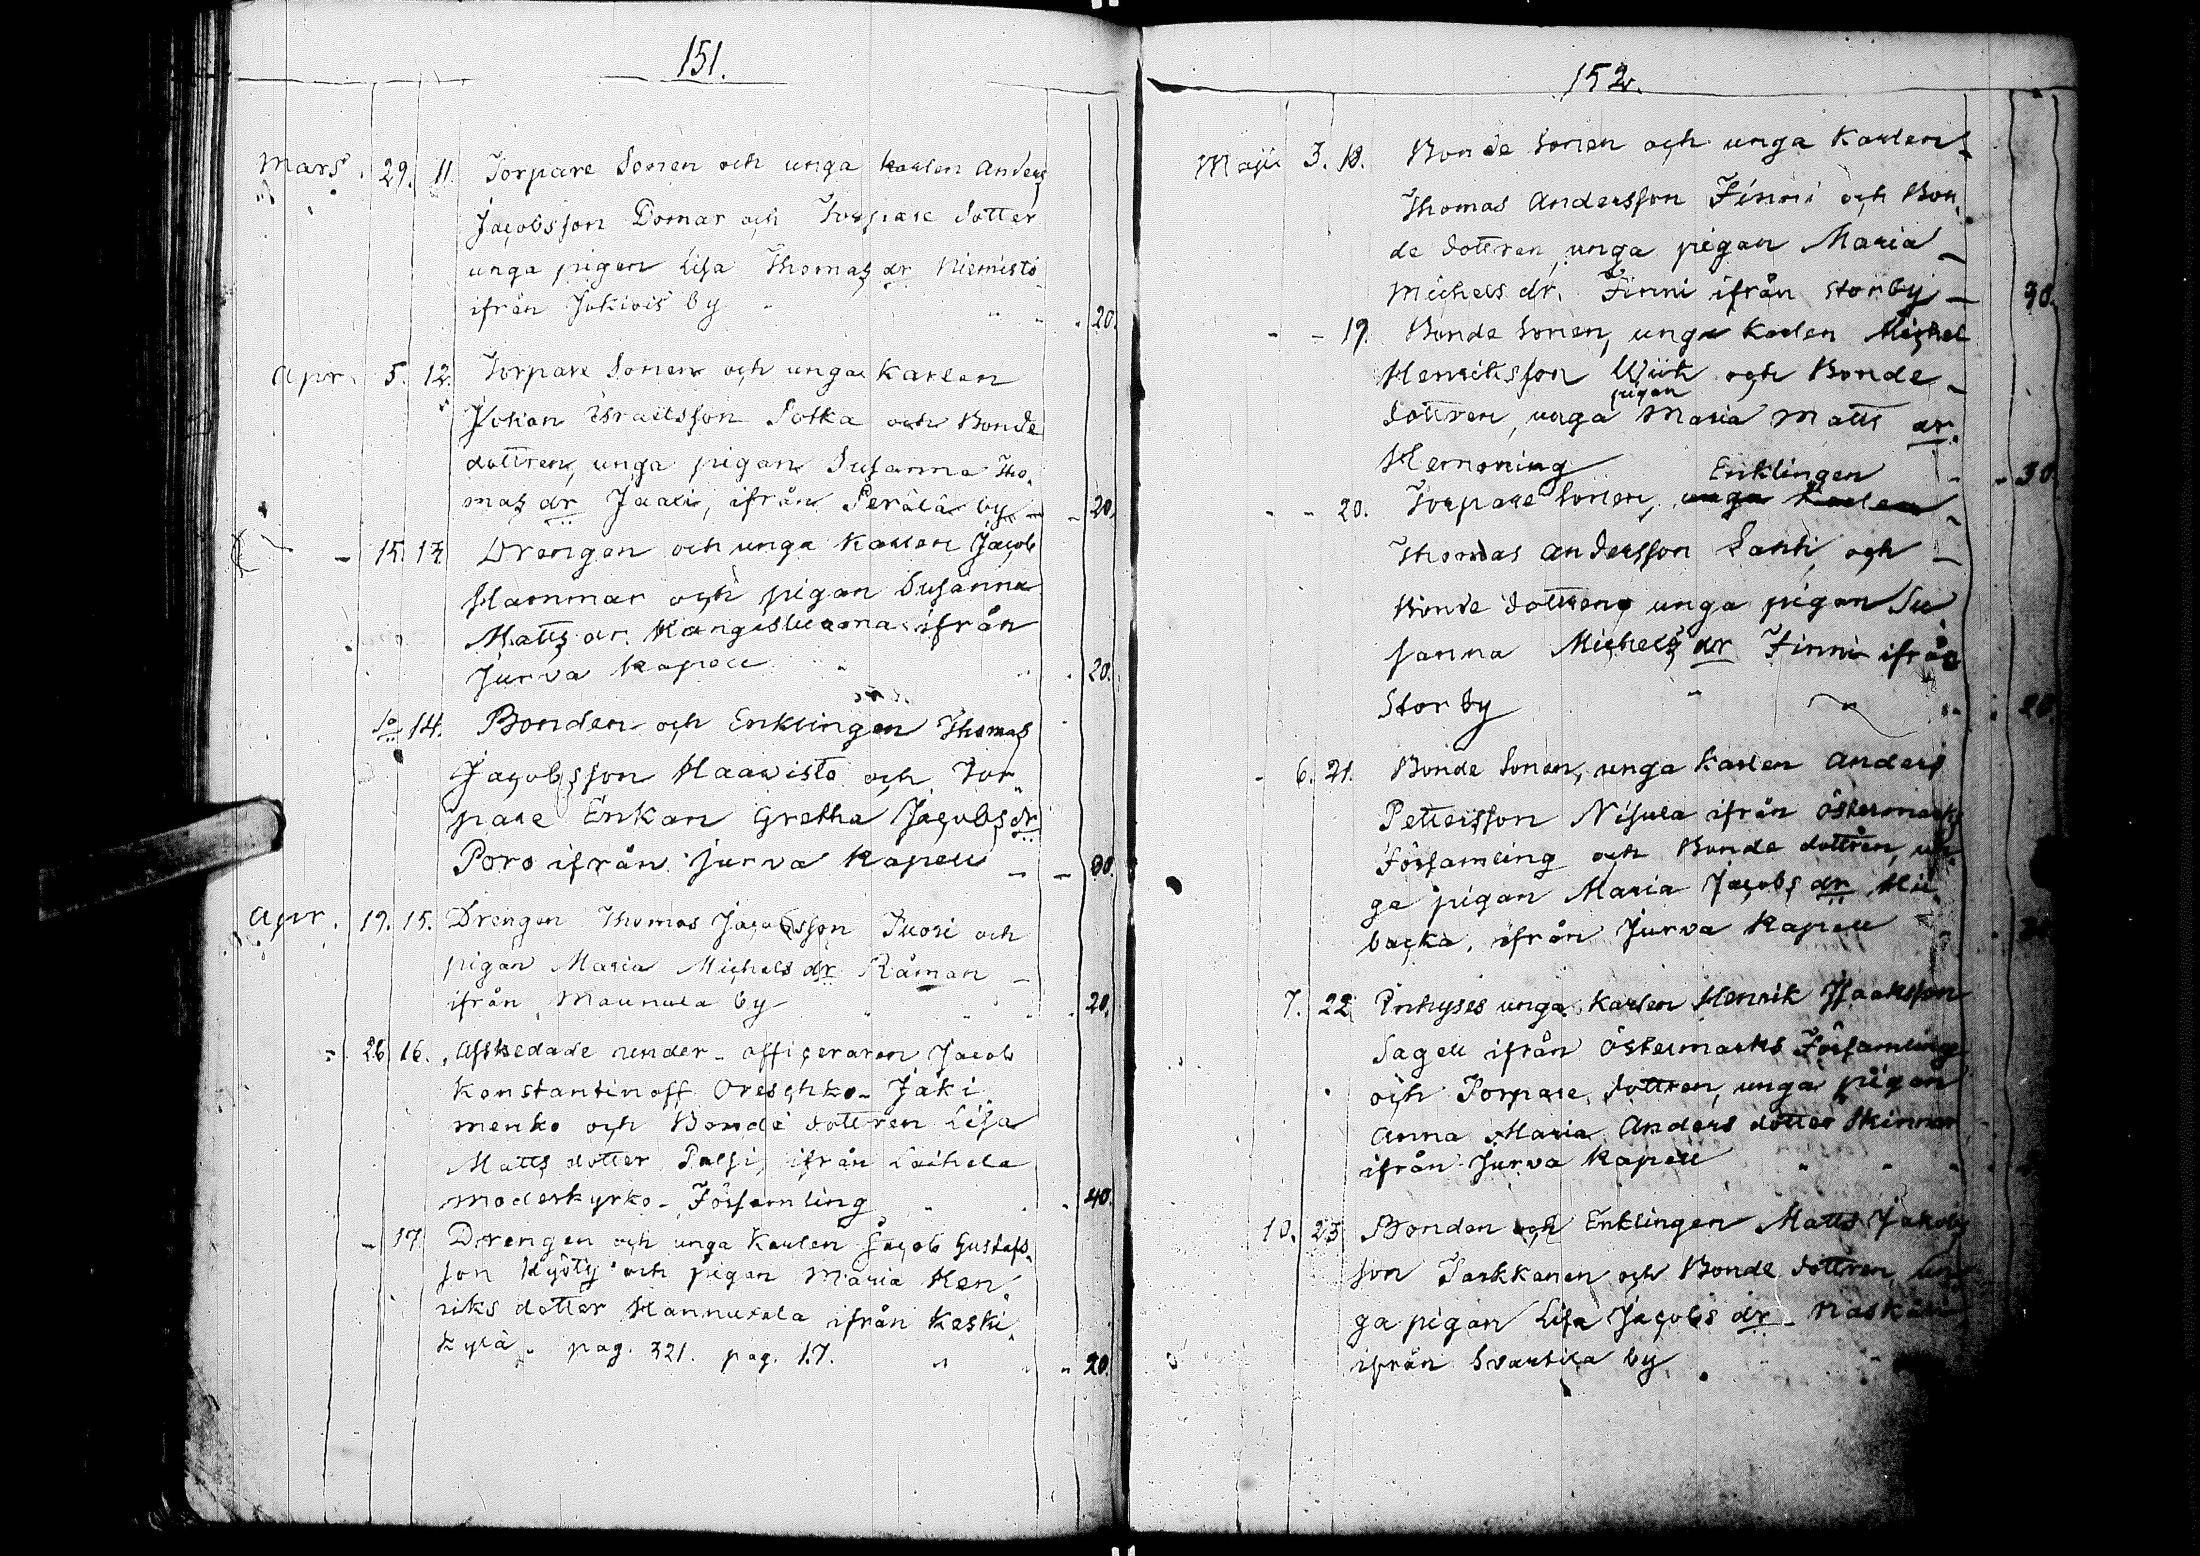 151.
Mars. 29. 11. Torpare Sonen och unga karlen Anders
Jacobsson Domar och Torpare dotter
unga pigan Lisa Thomas dr Niemistö
ifrån Jokiois by 20.
Apr. 5. 12. Torpare Sonen och unga karlen
Johan Israelsson Sotka och Bonde
dottren, unga pigan Susanna Tho-
mas dr Jaari, ifrån Perälä by 20.
15. 13. Drengen och unga karlen Jacob
Hammar och pigan Susanna
Matts dr. ifrån
Jurva kapell 20.
do 14. Bonden och Enklingen Thomas
Jacobsson Haawisto och Tor-
pare Enkan Gretha Jacobs dr
Poro ifrån Jurva Kapell 30.
Apr. 19. 15. Drengen Thomas Jacobsson Tuori och
pigan Maria Michels dr Råman
ifrån Maunula by 20.
26. 16. Afskedade under-officeraren Jacob
Konstantinoff Oreschko-Jaki-
menko och Bonde dottren Lisa
Matts dotter Palsi, ifrån Laihela
moderkyrko-Församling 40.
17. Drengen och unga karlen Jacob Gustafs-
son Kyöty och pigan Maria Hen-
riks dotter Hannuxela ifrån Keski
kylä. pag. 321. pag. 17. 20.
152.
Maji 3. 18. Bonde Sonen och unga karlen
Thomas Andersson Finni och Bon-
de dottren, unga pigan Maria
Michels dr. Finni ifrån Storby 30.
19. Bonde Sonen, unga karlen Michel
Henriksson Wiik och Bonde
pigan
dottren, unga Maria Matts dr.
Hemming 30
Enklingen
20. Torpare Sonen, unga karlen
Thomas Andersson Lahti, och
Bonde dottren, unga pigan Su-
sanna Michels dr Finni ifrån
Storby 20.
6. 21. Bonde Sonen, unga karlen Anders
Pettersson Nisula ifrån Östermarks
Församling och Bonde dottren, un-
ga pigan Maria Jacobs dr
backa, ifrån Jurva Kapell
7. 22. Inhyses unga karlen Henrik Isaaksson
Sagell ifrån Östermarks Församling
och Torpare dottren, unga pigan
Anna Maria Anders dotter Skinnar
ifrån Jurva kapell
10. 23. Bonden och Enklingen Matts Jakobs
son Tarkkanen och Bonde dottren, un
ga pigan Lisa Jacobs dr
ifrån Svartila by